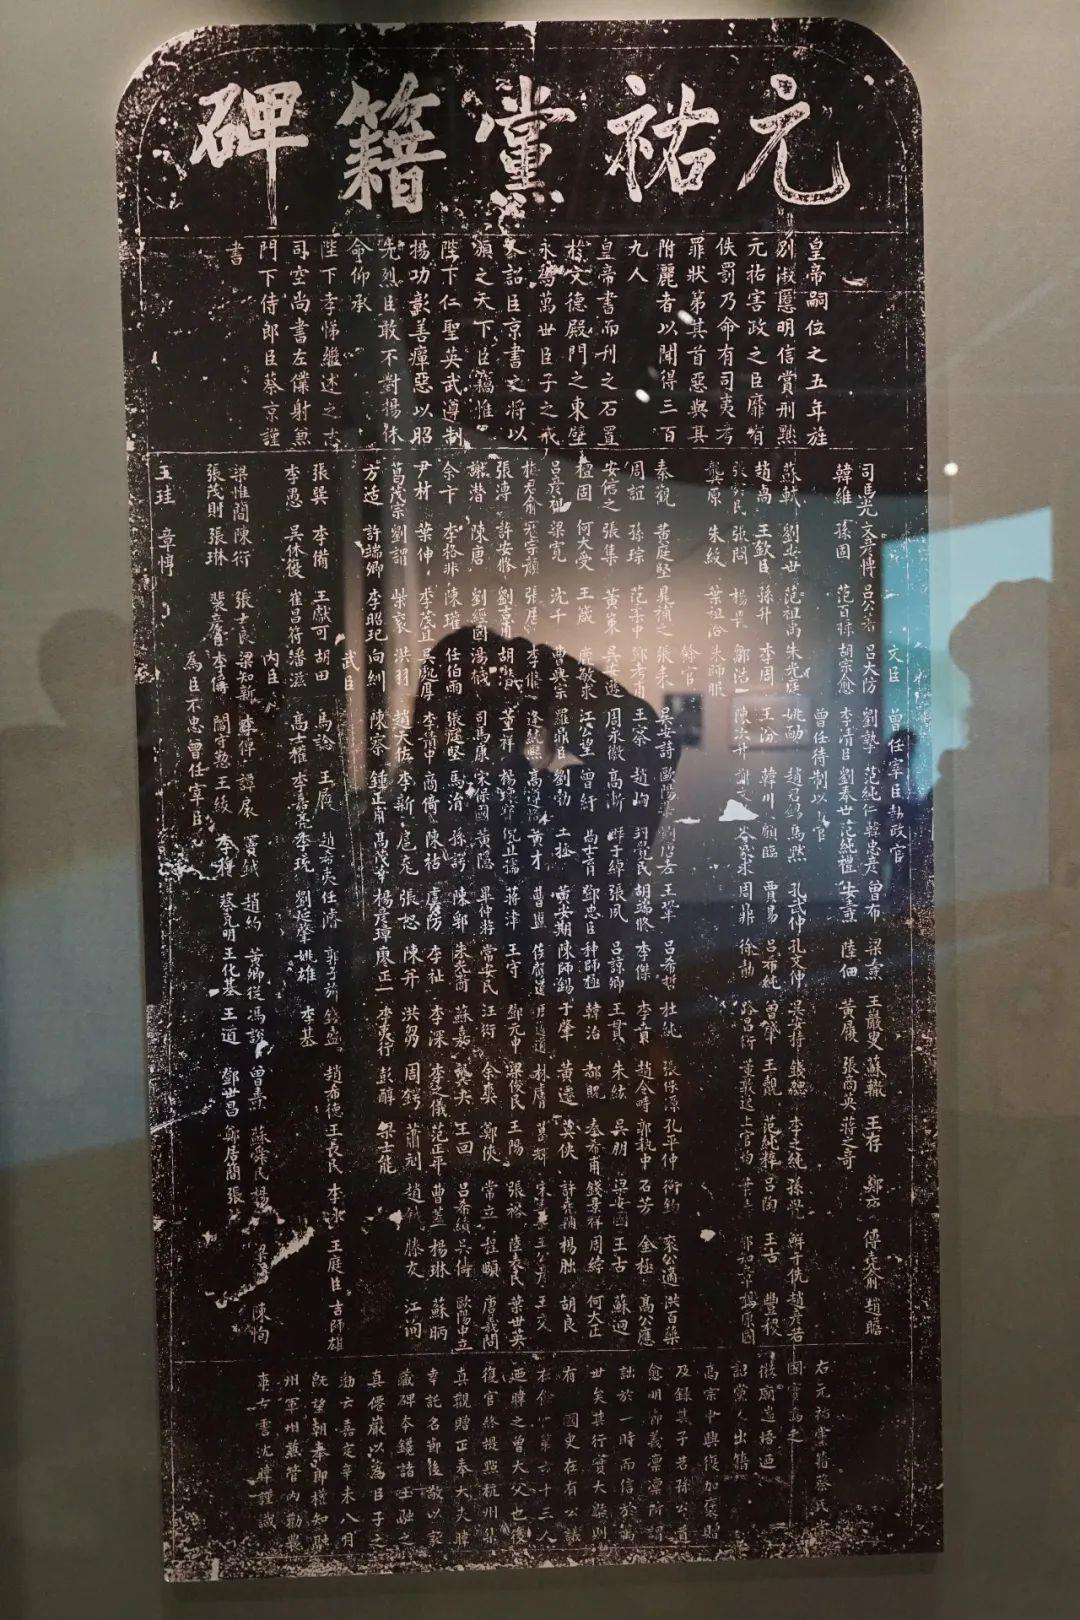 元祐黨籍碑
皇帝嗣位之五年旌
別淑慝明信賞刑黜
元祐害政之臣靡有
佚罰乃命有司夷考
罪狀第其首惡與其
附麗者以聞得三百
九人
皇帝書而刊之石置
於文德殿門之東壁
永為萬世臣子之戒
又詔臣京書之將以
頒之天下臣竊惟
陛下仁聖英武遵制
揚功彰善癉惡以昭
先烈臣敢不對揚休
命仰承
陛下孝悌繼述之志
司空尚書左僕射兼
門下侍郎臣蔡京謹
書
文臣
曾任宰臣執政官
司馬光 文彥博 呂公著 呂大防 劉摯 范純仁 韓忠彥 曾布 梁燾 王巖叟 蘇轍 王存 鄭雍 傅堯俞 趙瞻
韓維 孫固 范百祿 胡宗愈 李清臣 劉奉世 范純禮 安燾 陸佃 黃履 張商英 蔣之奇
曾任待制以上官
蘇軾 劉安世 范祖禹 朱光庭 姚勔 趙君錫 馬默 孔武仲 孔文仲 吳安持 錢勰 李之純 孫覺 鮮于侁 趙彥若
趙卨 王欽臣 孫升 李周 王汾 韓川 顧臨 賈易 呂希純 曾肇 王覿 范純粹 呂陶 王古 豐稷
張舜民 張問 楊畏 鄒浩 陳次升 謝文瓘 岑象求 周鼎 徐勣 路昌衡 董敦逸 上官均 郭知章 楊康國
龔原 朱紱 葉祖洽 朱師服
餘官
秦觀 黃庭堅 晁補之 張耒 吳安詩 歐陽棐 劉唐老 王鞏 呂希哲 杜純 張保源 孔平仲 衡鈞 袞公適 洪百藥
周誼 孫琮 范柔中 鄧考甫 王察 趙峋 封覺民 胡端修 李傑 李賁 趙令畤 郭執中 石芳 金極 高公應
安信之 張集 黃策 吳安遜 周永徽 高漸 張夙 呂諒卿 王貫 朱紘 吳朋 梁安國 王古 蘇迥
檀固 何大受 王箴 鹿敏求 江公望 曾紆 高士育 鄧忠臣 种師極 韓治 都貺 秦希甫 錢景祥 周綍 何大正
呂彥祖 梁寬 沈千 曹興宗 羅鼎臣 劉勃 王拯 黃安期 陳師錫 于肇 黃遷 莫俠 許堯輔 楊朏 胡良
梅君俞 寇宗顏 張居 李修 逢純熙 高遵恪 黃才 曹盥 侯顧道 周遵道 林膚 葛輝 宋壽岳 王公彥 王交
張溥 許安修 劉吉甫 胡潛 董祥 揚瓌寶 倪直孺 蔣津 王守 鄧允中 梁俊民 王陽 張裕 陸表民 葉世英
謝潛 陳唐 劉經國 湯戫 司馬康 宋保國 黃隱 畢仲游 常安民 汪衍 余爽 鄭俠 常立 程頤 唐義問
余卞 李格非 陳瓘 任伯雨 張庭堅 馬涓 孫諤 陳郛 朱光裔 蘇嘉 龔夬 王回 呂希績 吳儔 歐陽中立
尹材 葉伸 李茂直 吳處厚 李積中 商倚 陳祐 虞防 李祉 李深 李之儀 范正平 曹蓋 楊琳 蘇昞
葛茂宗 劉謂 柴袞 洪羽 趙天佐 李新 扈充 張恕 陳并 洪芻 周鍔 蕭刓 趙鉞 滕友 江洵
方适 許端卿 李昭玘 向紃 陳察 鍾正甫 高茂華 楊彥璋 廖正一 李夷行 彭醇 梁士能
武臣
張巽 李備 王獻可 胡田 馬諗 王履 趙希夷 任濬 郭子旂 錢盛 趙希德 王長民 李永 王庭臣 吉師雄
李愚 吳休復 崔昌符 潘滋 高士權 李嘉亮 李珫 劉延肇 姚雄 李基
內臣
梁惟簡 陳衍 張士良 梁知新 李倬 譚扆 竇鉞 趙約 黃卿從 馮說 曾燾 蘇舜民 楊偁 陳恂
張茂則 張琳 裴彥臣 李偁 閻守懃 王紱 李穆 蔡克明 王化基 王道 鄧世昌 鄭居簡 張祐
為臣不忠曾任宰臣
王珪 章惇
右元祐黨籍蔡氏
國實為之
徽廟遄悟迺
詔黨人出籍
高宗中興復加褒贈
及錄其子若孫公道
愈明節義凜凜所謂
詘於一時而信於萬
世矣其行實大槩則
有 國史在有公議
在餘官第六十三人
迺暐之曾大父也後
復官終提點杭州集
真觀贈正奉大夫暐
幸託名節後敬以家
藏碑本鑱諸玉融之
真僊巖以為臣子之
勸云嘉定辛未八月
既望朝奉郎權知融
州軍州兼管內勸農
事古雩沈暐謹識